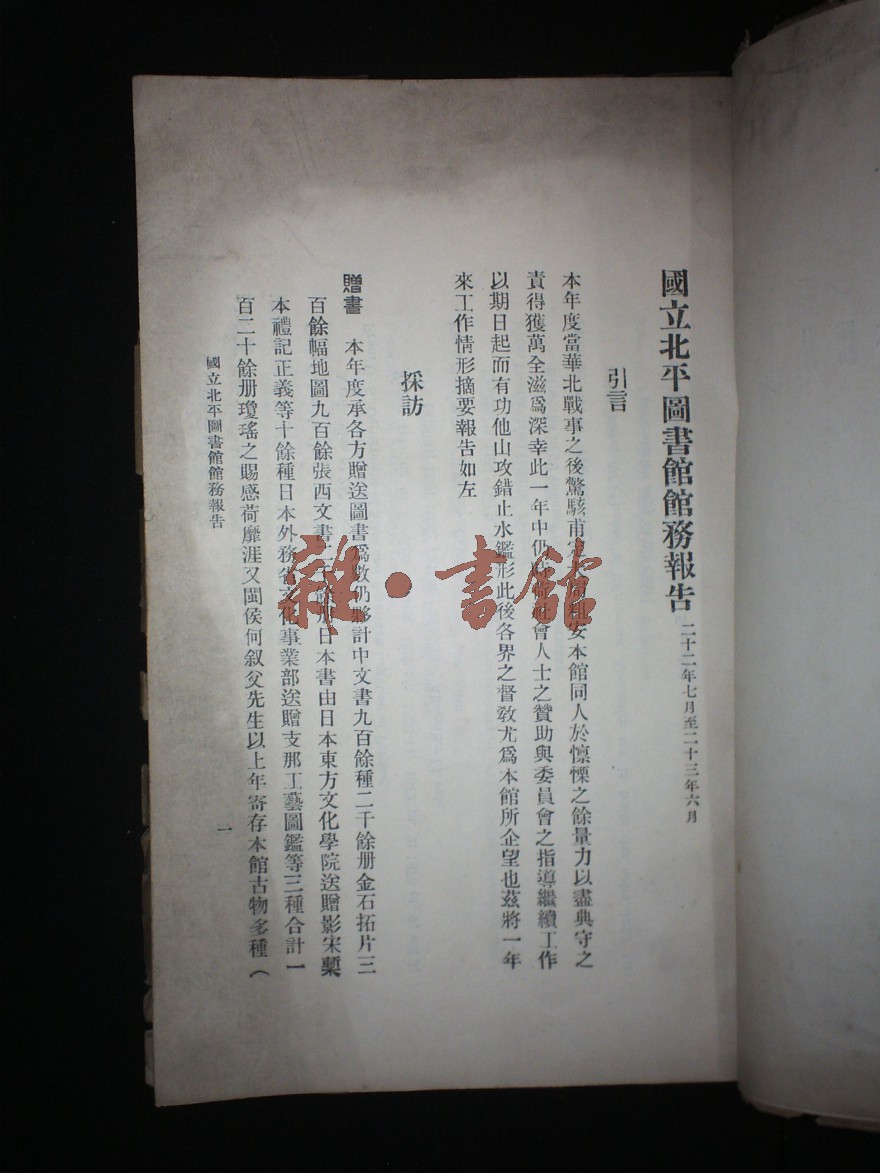 國立北平圖書館館務報告 二十二年七月至二十三年六月
引言
本年度當華北戰事之後驚駭甫定粗安本館同人於懔慄之餘量力以盡典守之
責得獲萬全滋爲深幸此一年中仍會人士之贊助與委員會之指導繼續工作
以期日起而有功他山攻錯止水鑑形此後各界之督敎尤爲本館所企望也茲將一年
來工作情形摘要報告如左
採訪
贈書 本年度承各方贈送圖書爲數仍夥計中文書九百餘種二千餘册金石拓片三
百餘幅地圖九百餘張西文書二千餘册日本書由日本東方文化學院送贈影宋槧
本禮記正義等十餘種日本外務省文化事業部送贈支那工藝圖鑑等三種合計一
百二十餘册瓊瑤之賜感荷靡涯又閩侯何叙父先生以上年寄存本館古物多種（
國立北平圖書館館務報告
一
雜·書館